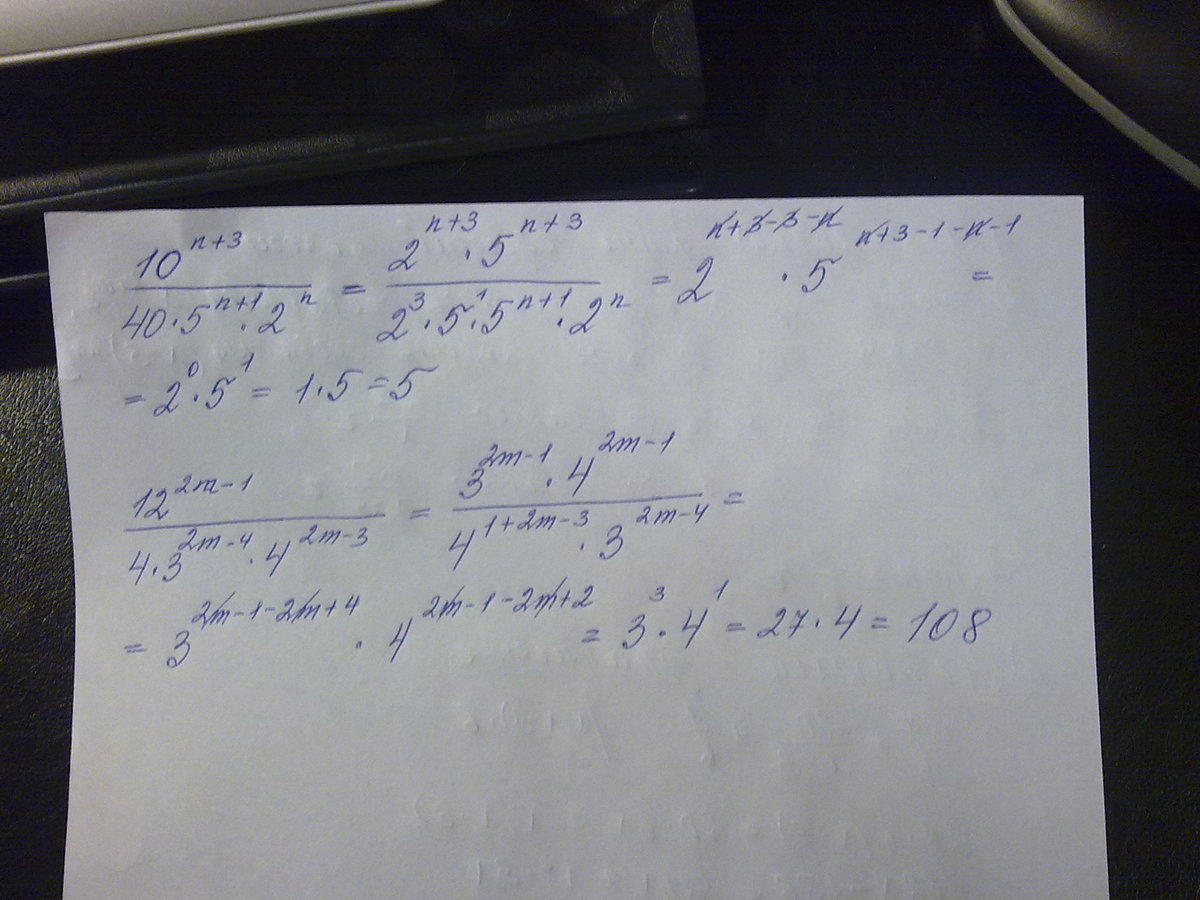 10^{n+3} / (40·5^{n+1}·2^n) = (2^{n+3}·5^{n+3}) / (2^3·5^1·5^{n+1}·2^n) = 2^{n+3-3-n}·5^{n+3-1-n-1} =
= 2^0·5^1 = 1·5 = 5
12^{2m-1} / (4·3^{2m-4}·4^{2m-3}) = (3^{2m-1}·4^{2m-1}) / (4^{1+2m-3}·3^{2m-4}) =
= 3^{2m-1-2m+4}·4^{2m-1-2m+2} = 3^3·4^1 = 27·4 = 108